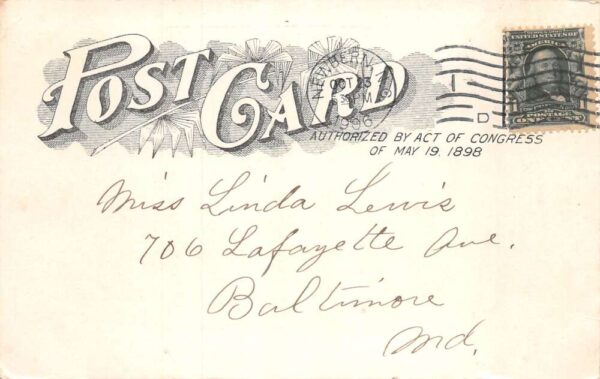 POST CARD
NEWBERN
OCT
1906
D
UNITED STATES
OF AMERICA
POSTAGE
AUTHORIZED BY ACT OF CONGRESS
OF MAY 19, 1898
Miss Linda Lewis
706 Lafayette Ave.
Baltimore
Md.